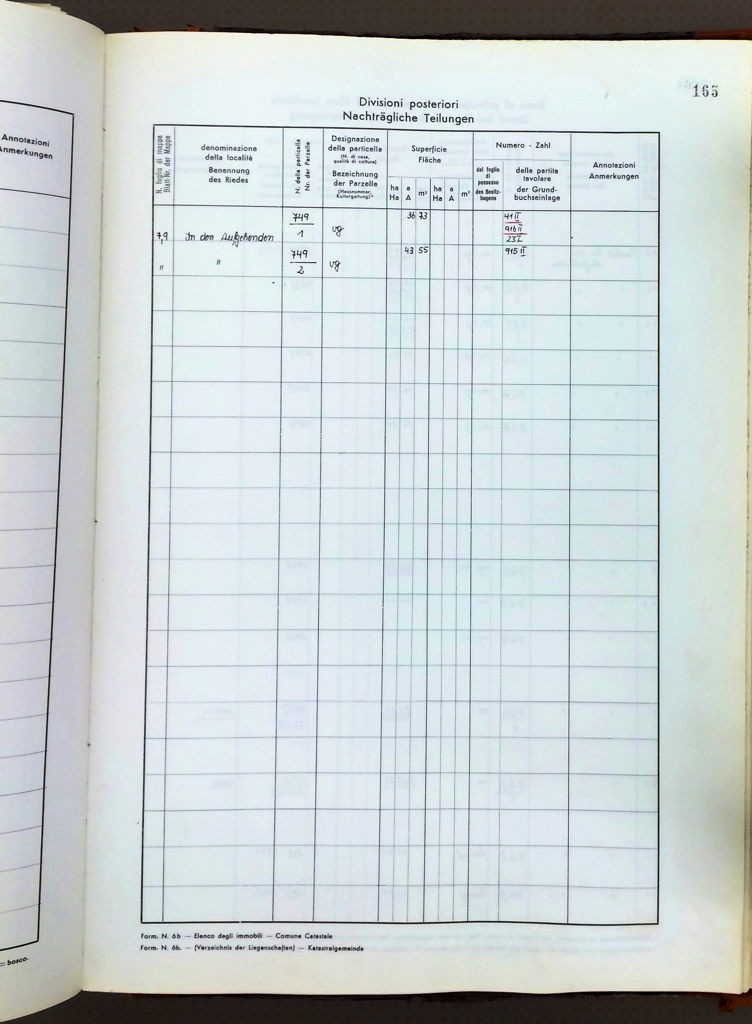 Annotazioni
Anmerkungen
= bosco.
165
Divisioni posteriori
Nachträgliche Teilungen
N. foglio di mappa
Blatt-Nr. der Mappe
denominazione
della località
Benennung
des Riedes
N. della particella
Nr. der Parzelle
Designazione
della particella
(N. di casa,
qualità di coltura)
Bezeichnung
der Parzelle
(Hausnummer,
Kulturgattung)*
Superficie
Fläche
ha a m² ha a m²
Ha A Ha A
Numero - Zahl
del foglio
di
possesso
des Besitz-
bogens
della partita
tavolare
der Grund-
buchseinlage
Annotazioni
Anmerkungen
749 36 73 41 II
7,9 In den Aufgehenden 1 vg 916 II
23 I
749 43 55 915 II
" " 2 vg
Form. N. 6b — Elenco degli immobili — Comune Catastale
Form. N. 6b. — (Verzeichnis der Liegenschaften) — Katastralgemeinde